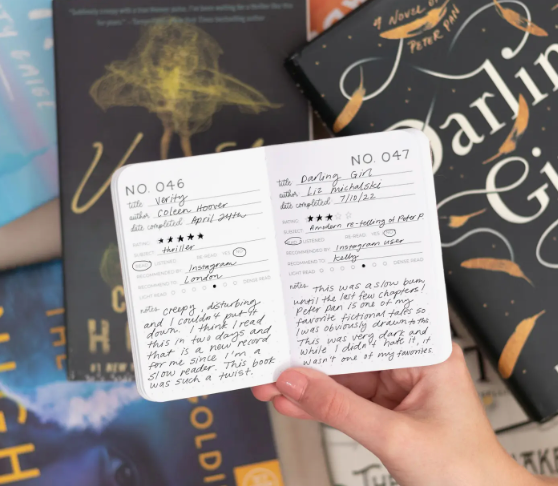 A NOVEL OF
PETER PAN
Darling
Gi
NO. 046
title Verity
author Coleen Hoover
date completed April 24th
RATING ★★★★★
SUBJECT thriller
READ LISTENED RE-READ YES NO
RECOMMENDED BY Instagram
RECOMMENDED TO London
LIGHT READ DENSE READ
notes creepy, disturbing
and I couldn't put it
down. I think I read
this in two days and
that is a new record
for me since I'm a
slow reader. This book
was such a twist.
NO. 047
title Darling Girl
author Liz Michalski
date completed 7/10/22
RATING ★★★☆☆
SUBJECT A modern re-telling of Peter P
READ LISTENED RE-READ YES NO
RECOMMENDED BY Instagram user
RECOMMENDED TO Kelly
LIGHT READ DENSE READ
notes This was a slow burn
until the last few chapters!
Peter Pan is one of my
favorite fictional tales so
I was obviously drawn to this
This was very dark and
while I didn't hate it, it
wasn't one of my favorites.
#1 NEW YORK